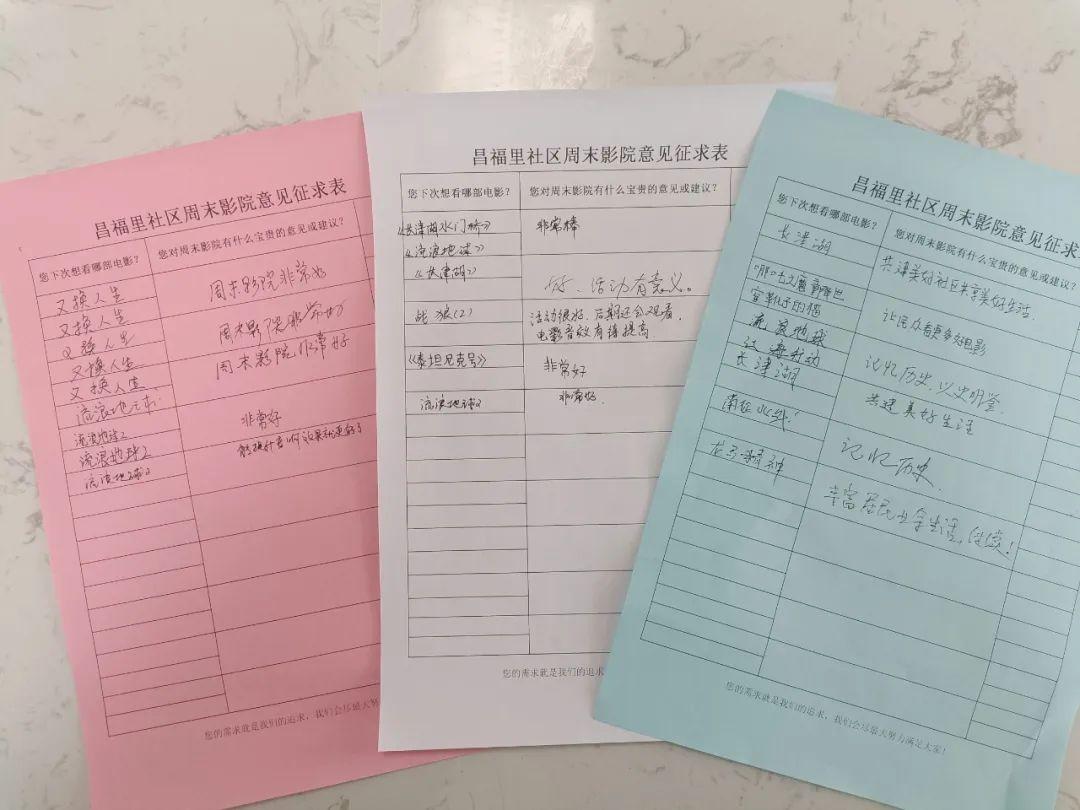 昌福里社区周末影院意见征求表
您下次想看哪部电影?
您对周末影院有什么宝贵的意见或建议?
又换人生
又换人生
又换人生
又换人生
又换人生
流浪地球
流浪地球2
流浪地球2
流浪地球2
周末影院非常好
周末影院非常好
周末影院非常好
非常好
能提升音响效果就更好了
您的需求就是我们的追求,我们会尽最大努
昌福里社区周末影院意见征求表
您下次想看哪部电影?
您对周末影院有什么宝贵的意见或建议?
《长津湖水门桥》
《流浪地球》
《长津湖》
战狼(2)
《泰坦尼克号》
流浪地球2
非常棒
好、活动有意义。
活动很好,后期还会观看,
电影音效有待提高
非常好
非常好.
您的需求就是我们的追求
昌福里社区周末影院意见征求
您下次想看哪部电影?
您对周末影院有什么宝贵的意见或建议?
长津湖
流浪地球
红海行动
长津湖
南征北战!
龙马精神
共建美好社区共享美好生活
让民众看更多好电影
记忆历史,以史明鉴,
共建美好生活
记忆历史.
丰富居民业余生活,继续!
您的需求就是我们的追求,我们会尽最大努力满足大家!